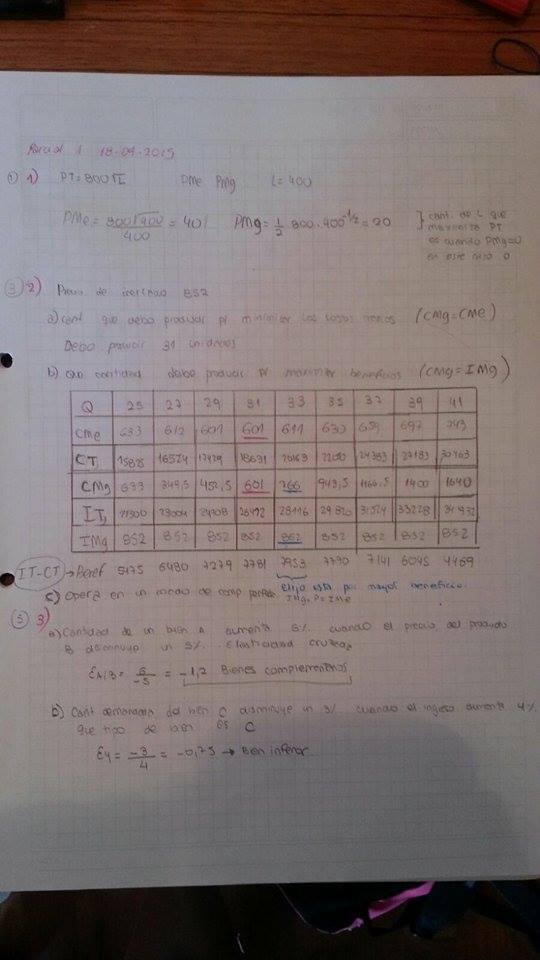 Parcial 1 18-09-2015
① 1) PT = 800√L PMe PMg L = 400
PMe = 800√400 / 400 = 40 PMg = 1/2 800 · 400^-1/2 = 20 } cant. de L que
maximiza PT
es cuando PMg=0
en este caso 0
③ 2) Precio de mercado 852
a) cant que debo producir p/ minimizar los costos medios (CMg = CMe)
Debo producir 31 unidades
b) Que cantidad debo producir p/ maximizar beneficios (CMg = IMg)
Q 25 27 29 31 33 35 37 39 41
CMe 633 612 601 601 611 630 659 697 743
CT 15825 16524 17429 18631 20163 22050 24383 27183 30463
CMg 633 349,5 452,5 601 766 943,5 1166,5 1400 1640
IT 21300 23004 24708 26412 28116 29820 31524 33228 34932
IMg 852 852 852 852 852 852 852 852 852
IT-CT → Benef 5475 6480 7279 7781 7953 7770 7141 6045 4469
Elijo esta por mayor beneficio.
c) Opera en un mercado de comp perfecta. IMg = P = IMe
⑤ 3)
a) Cantidad de un bien A aumenta 6% cuando el precio del producto
B disminuye un 5%. Elasticidad cruzada
EA/B = 6 / -5 = -1,2 Bienes complementarios
b) Cant demandada del bien C disminuye un 3% cuando el ingreso aumenta 4%
que tipo de bien es C
Ey = -3 / 4 = -0,75 → Bien inferior